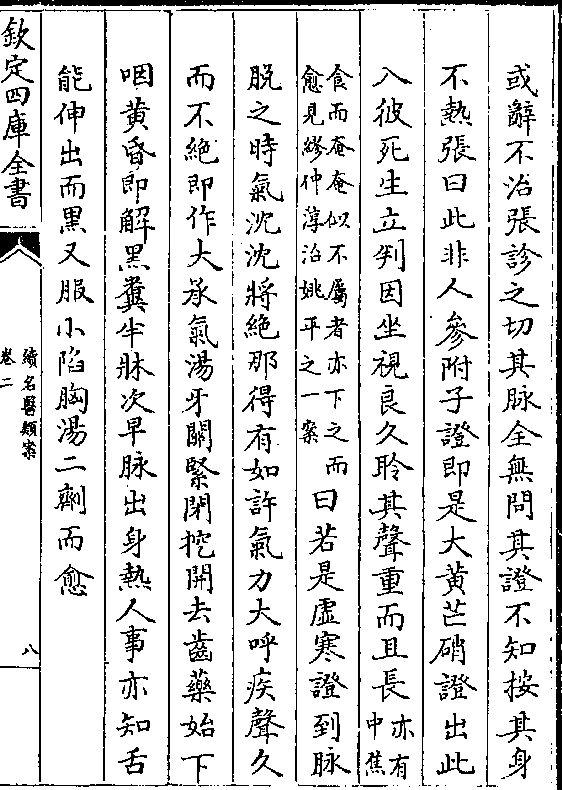 或辭不治張診之切其脉全無問其證不知按其身
不熱張曰此非人參附子證即是大黃芒硝證出此
入彼死生立判因坐視良久聆其聲重而且長亦有
中焦
食而奄奄似不屬者亦下之而
愈見繆仲淳治姚平之一案
曰若是虛寒證到脉
脫之時氣沈沈將絕那得有如許氣力大呼疾聲久
而不絕即作大承氣湯牙關緊閉挖開去齒藥始下
咽黃昏即解黑糞半牀次早脉出身熱人事亦知舌
能伸出而黑又服小陷胸湯二劑而愈
欽定四庫全書
續名醫類案
卷二
八